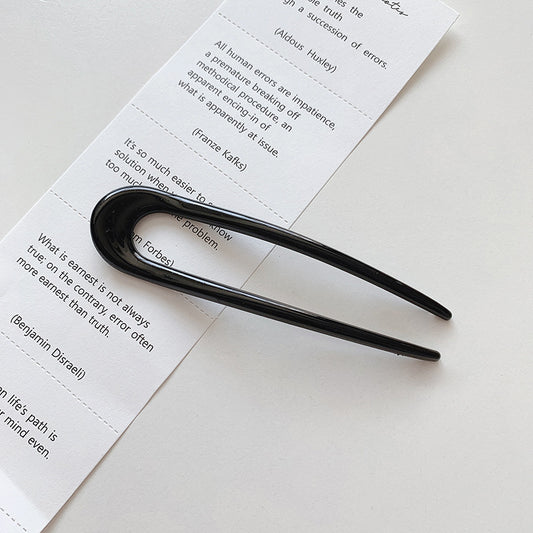 notes
the
truth
gh a succession of errors.
(Aldous Huxley)
All human errors are impatience,
a premature breaking off
methodical procedure, an
apparent encing-in of
what is apparently at issue.
(Franze Kafks)
It's so much easier to
solution when know
too muc the problem.
m Forbes)
What is earnest is not always
true; on the contrary, error often
more earnest than truth.
(Benjamin Disraeli)
n life's path is
r mind even.